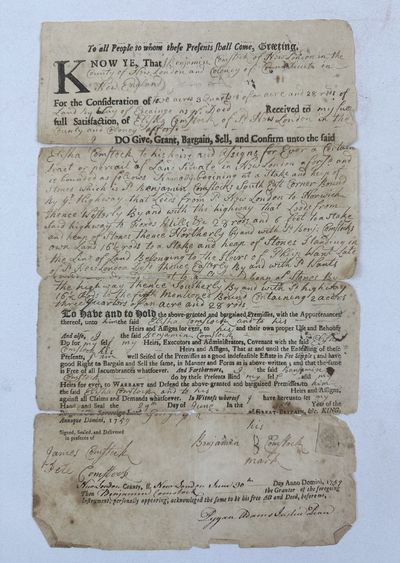 To all People to whom these Presents shall Come, Greeting.
KNOW YE, That I Benjamin Comstock of New London in the
County of New London and Colony of Connecticut in
New England
For the Consideration of two acres 3 Quarters of an acre and 28 rods of
Land by Way of Exchange as pr Deed Received to my
full Satisfaction, of Elisha Comstock of sd New London in the
County and Colony aforesd
DO Give, Grant, Bargain, Sell, and Confirm unto the said
Elisha Comstock to his heirs and assigns for Ever a Certain
Tract or parcel of Land Situate in New London aforesd and
is bounded as follows Viz begining at a Stake and heap of
Stones which is sd Benjamin Comstocks South East Corner Bound
by ye Highway that leads from sd New London to Norwich
thence Westerly By and with the highway that Leads from
Said highway to 53 rods and 6 feet to a Stake
and heap of Stones thence Northerly By and with sd Benj. Comstocks
own Land 16½ rods to a Stake and heap of Stones Standing in
the Line of Land Belonging to the of Late
of sd New London thence Easterly By and with sd
a heap of Stones By
the highway thence Southerly By and with sd highway
16½ rods to the first Mentioned Bound Containing 2 acres
three Quarters of an acre and 28 rods
To Have and to Hold the above-granted and bargained Premisses, with the Appurtenances
thereof, unto him the said Elisha Comstock and to his
Heirs and Assigns for ever, to his and their own proper Use and Behoof:
And also, I the said Benjamin Comstock
Do for my self my Heirs, Executors and Administrators, Covenant with the said
Elisha Comstock his Heirs and Assigns, That at and until the Ensealing of these
Presents, I am well Seized of the Premisses as a good indefeasible Estate in Fee Simple; and have
good Right to Bargain and Sell the same, in Manner and Form as is above written; and that the same
is Free of all Incumbrances whatsoever. And Furthermore, I the said Benjamin
Comstock do by these Presents Bind my self and my
Heirs for ever, to WARRANT and Defend the above-granted and bargained Premisses to him
the said Elisha Comstock and to his Heirs and Assigns,
against all Claims and Demands whatsoever. In Witness whereof I have hereunto set my
Hand and Seal the 29th Day of June In the Year of the
Sovereign Lord of GREAT-BRITAIN, &c. KING,
Annoque Domini, 1759
Signed, Sealed, and Delivered
in presence of
his
James Comstock
Benjamin Comstock
mark
Comstock
New London County, ss. New London June 30th Day Anno Domini, 1759
Then Benjamin Comstock the Grantor of the foregoing
Instrument, personally appearing, acknowledged the same to be his free Act and Deed, before me,
Pygan Adams Justice Peace